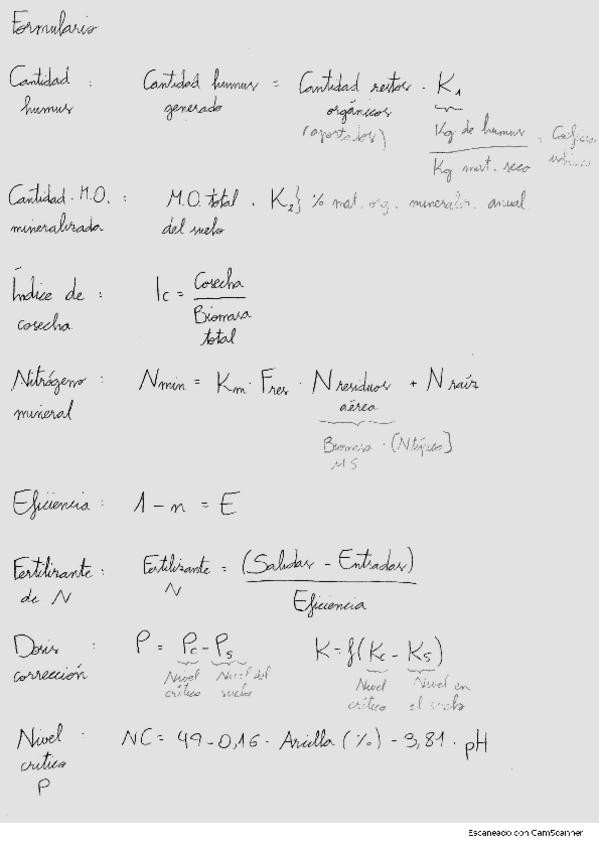 Formulario
Cantidad humus : Cantidad humus generado = Cantidad restos orgánicos (aportados) · K1
Kg de humus / Kg mat. seco = Coefici
Cantidad M.O. mineralizada : M.O. total del suelo · K2} % mat. org. mineraliz. anual
Índice de cosecha : Ic = Cosecha / Biomasa total
Nitrógeno mineral : Nmin = Km · Fres · N residuos aérea + N raíz
Biomasa MS · [N tejido]
Eficiencia : 1 - n = E
Fertilizante de N : Fertilizante N = (Salidas - Entradas) / Eficiencia
Dosis corrección : P = Pc - Ps K = f(Kc - Ks)
Nivel crítico Nivel del suelo Nivel crítico Nivel en el suelo
Nivel crítico P : NC = 49 - 0,16 · Arcilla (%) - 3,81 · pH
Escaneado con CamScanner